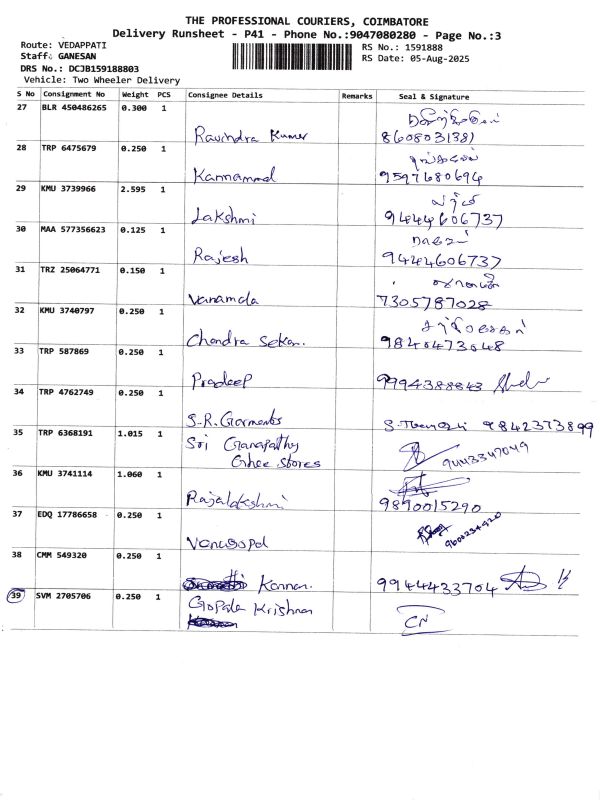 THE PROFESSIONAL COURIERS, COIMBATORE
Delivery Runsheet - P41 - Phone No.:9047080280 - Page No.:3
Route: VEDAPPATI
RS No.: 1591888
Staff: GANESAN
RS Date: 05-Aug-2025
DRS No.: DCJB159188803
Vehicle: Two Wheeler Delivery
S No Consignment No Weight PCS Consignee Details Remarks Seal & Signature
27 BLR 450486265 0.300 1
Ravindra Kumar 8608031381
28 TRP 6475679 0.250 1
Kannammal 9597680694
29 KMU 3739966 2.595 1
Lakshmi 9444606737
30 MAA 577356623 0.125 1
Rajesh 9444606737
31 TRZ 25064771 0.150 1
Vanamala 7305787028
32 KMU 3740797 0.250 1
Chandra Sekar. 9840473648
33 TRP 587869 0.250 1
Pradeep 9994388843
34 TRP 4762749 0.250 1
S.R. Garments 9842373899
35 TRP 6368191 1.015 1 Sri Ganapathy
Ghee Stores 9443347049
36 KMU 3741114 1.060 1
Rajalakshmi 9890015290
37 EDQ 17786658 0.250 1
Venugopal 9600234920
38 CMM 549320 0.250 1
Kannan. 9944433704
39 SVM 2705706 0.250 1 Gopala Krishnan